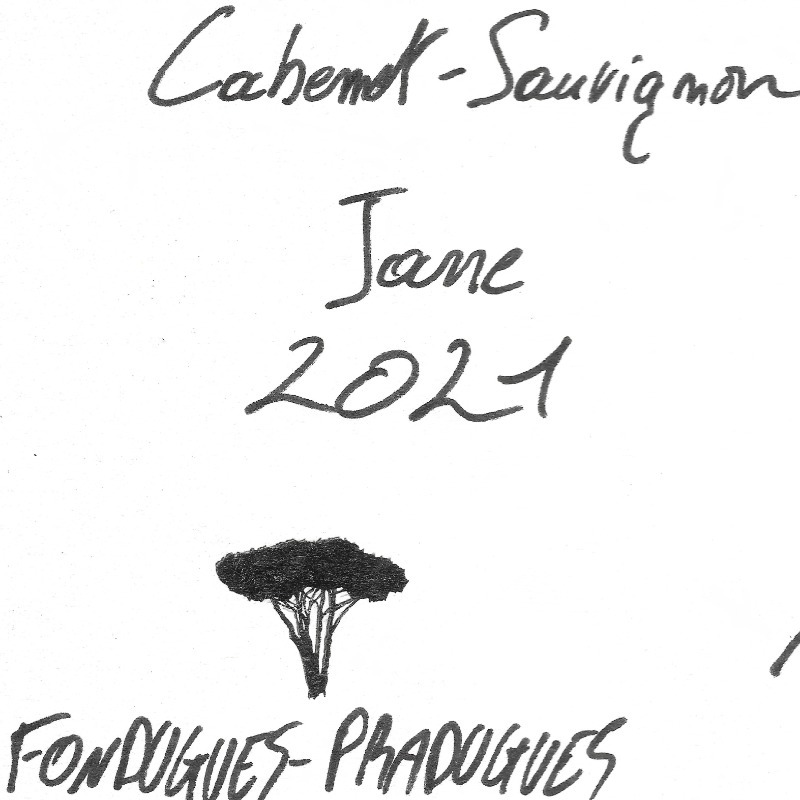 Cabernet-Sauvignon
Jane
2021
FONDUGUES-PRADUGUES